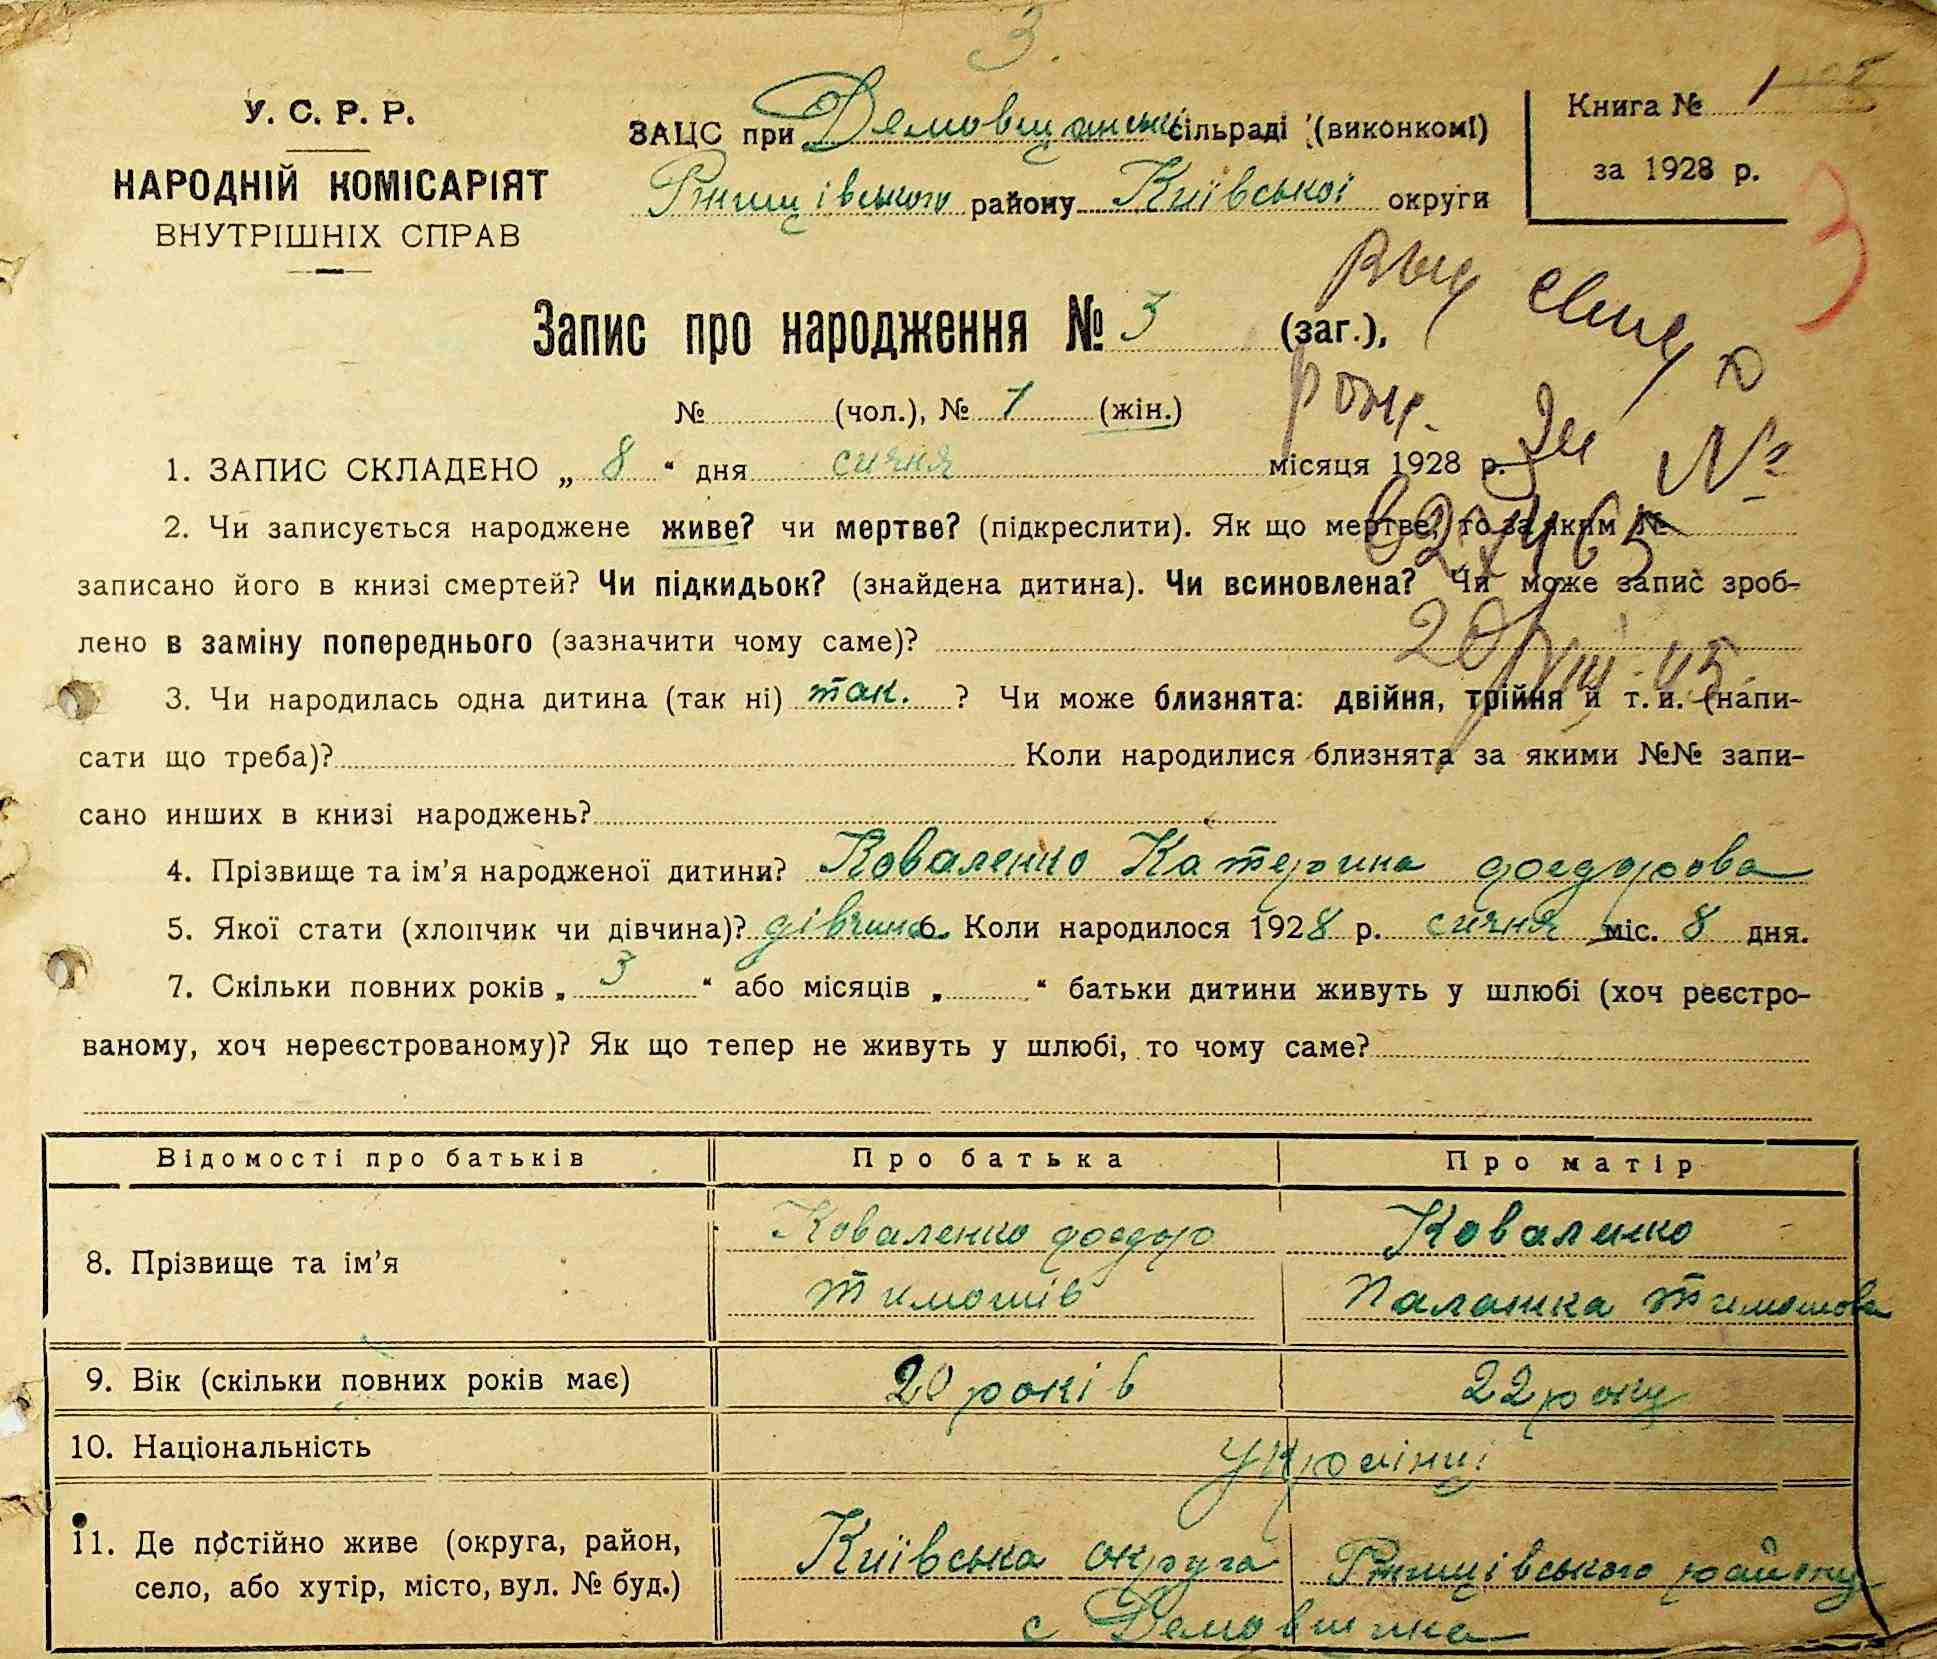 3.
У. С. Р. Р.
НАРОДНІЙ КОМІСАРІЯТ
ВНУТРІШНІХ СПРАВ
ЗАЦС при Демовщанські сільраді (виконкомі)
Ржищівського району Київської округи
Книга № 1
за 1928 р.
3
Запис про народження № 3 (заг.),
№ (чол.), № 1 (жін.)
рож.
№
1. ЗАПИС СКЛАДЕНО „ 8 “ дня сичня місяця 1928 р.
2. Чи записується народжене живе? чи мертве? (підкреслити). Як що мертве, то за яким №
записано його в книзі смертей? Чи підкидьок? (знайдена дитина). Чи всиновлена? Чи може запис зроб-
лено в заміну попереднього (зазначити чому саме)?
3. Чи народилась одна дитина (так ні) так. ? Чи може близнята: двійня, трійня й т. и. (напи-
сати що треба)? Коли народилися близнята за якими №№ запи-
сано инших в книзі народжень?
4. Прізвище та ім’я народженої дитини? Коваленко Катерина Фоедорова
5. Якої стати (хлопчик чи дівчина)? дівчина 6. Коли народилося 1928 р. сичня міс. 8 дня.
7. Скільки повних років „ 3 “ або місяців „ “ батьки дитини живуть у шлюбі (хоч реєстро-
ваному, хоч нереєстрованому)? Як що тепер не живуть у шлюбі, то чому саме?
Відомості про батьків Про батька Про матір
8. Прізвище та ім’я
Коваленко Фоедор
Тимошів
Коваленко
Палажка Тимошова
9. Вік (скільки повних років має) 20 років 22 року
10. Національність українці
11. Де постійно живе (округа, район,
село, або хутір, місто, вул. № буд.)
Київська округа Ржищівського району
с Демовщина